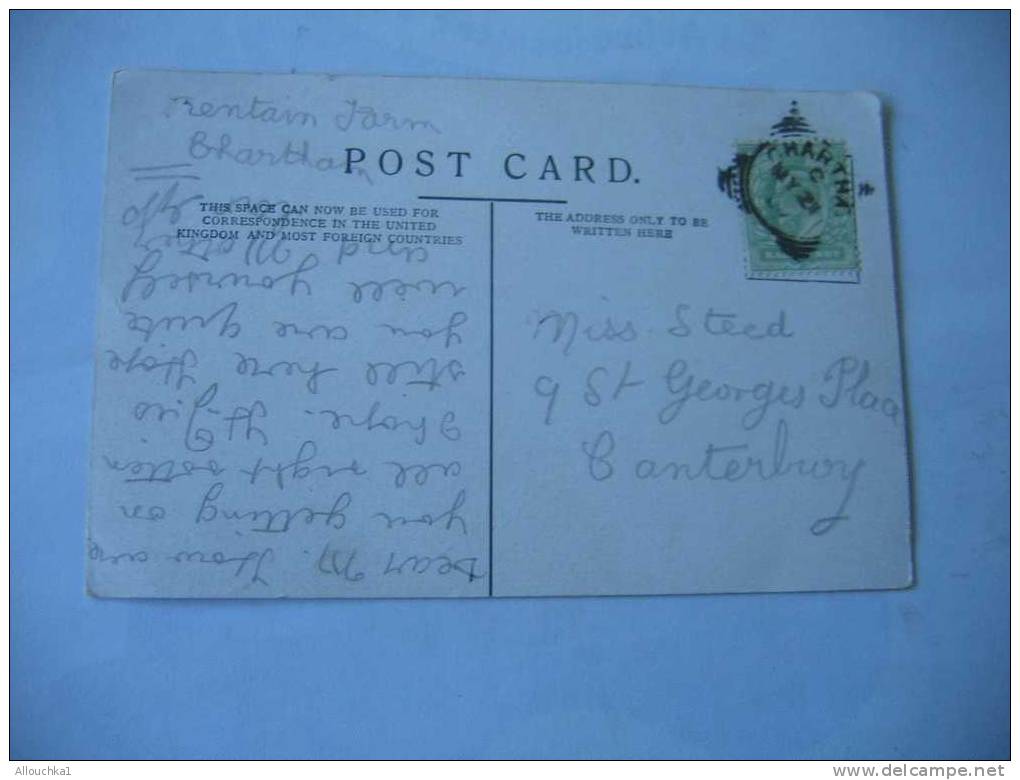 Farm
Chartham
POST CARD.
THIS SPACE CAN NOW BE USED FOR
CORRESPONDENCE IN THE UNITED
KINGDOM AND MOST FOREIGN COUNTRIES
THE ADDRESS ONLY TO BE
WRITTEN HERE
CHARTHA
C
MY 21
Miss Steed
9 St Georges Place
Canterbury
Dear M. How are
you getting on
all right
I hope.
still here Hope
you are quite
well yourself
and Mother
Allouchka1